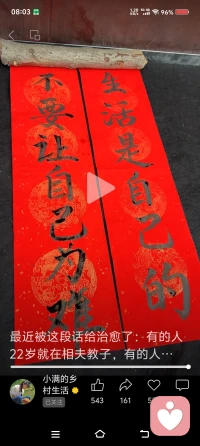 08:03
96%
生活是自己的
不要让自己为难
最近被这段话给治愈了：有的人
22岁就在相夫教子，有的人…
小满的乡
村生活
已关注
543
161